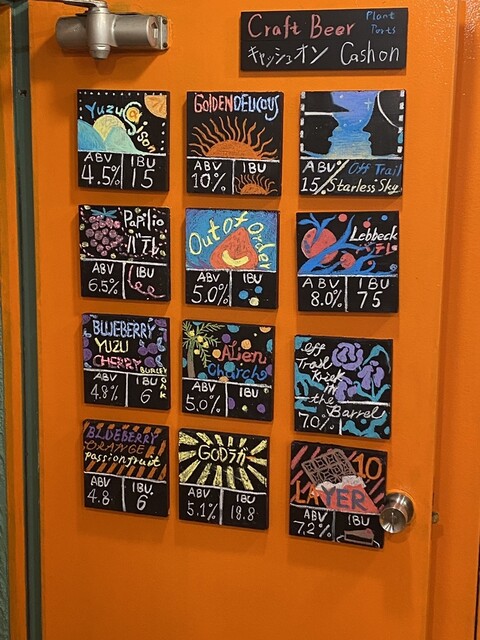 Craft Beer
Plant
Ports
キャッシュオン Cashon
Yuzu Saison
ABV IBU
4.5% 15
GOLDENDELICIOUS
ABV IBU
10%
ABV Off Trail
15% Starless Sky
Papilio
バテレ
ABV IBU
6.5%
Out of Order
ABV IBU
5.0%
Lebbeck
バテレ
ABV IBU
8.0% 75
BLUEBERRY
YUZU
CHERRY
ABV IBU
4.8% 6
Alien
Church
ABV IBU
5.0%
off
Trail
Kriek
in
the
Barrel
7.0%
BLUEBERRY
ORANGE
passionfruit
ABV IBU
4.8 6
GODラガー
ABV IBU
5.1% 18.8
10
LAYER
ABV IBU
7.2%